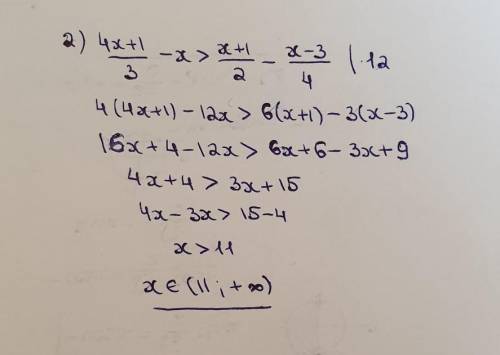 2) (4x+1)/3 - x > (x+1)/2 - (x-3)/4 | ·12
4(4x+1) - 12x > 6(x+1) - 3(x-3)
16x + 4 - 12x > 6x + 6 - 3x + 9
4x + 4 > 3x + 15
4x - 3x > 15 - 4
x > 11
x ∈ (11; +∞)